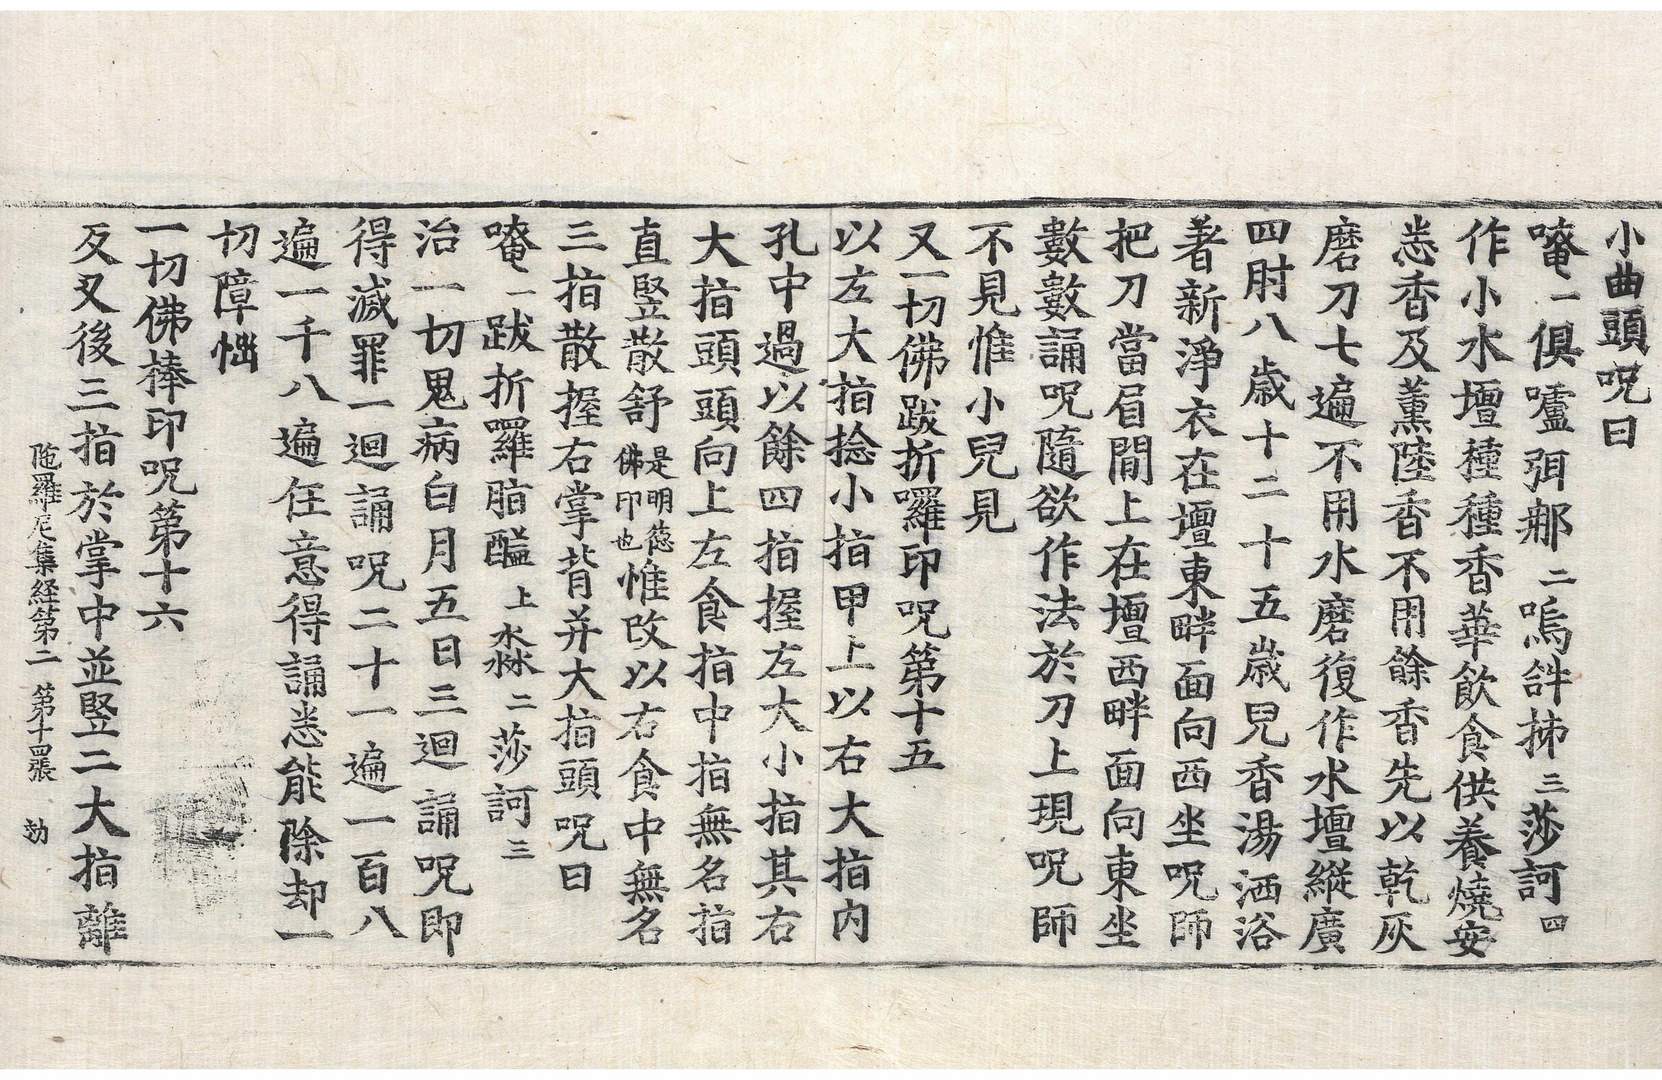 小曲頭呪曰
唵一俱嚧弭郝二嗚𤙖拂三莎訶四
作小水壇種種香華飲食供養燒安
悉香及薰陸香不用餘香先以乾灰
磨刀七遍不用水磨復作水壇縱廣
四肘八歲十二十五歲兒香湯洒浴
著新淨衣在壇東畔面向西坐呪師
把刀當眉間上在壇西畔面向東坐
數數誦呪隨欲作法於刀上現呪師
不見惟小兒見
又一切佛跋折囉印呪第十五
以左大指捻小指甲上以右大指内
孔中過以餘四指握左大小指其右
大指頭頭向上左食指中指無名指
直竪散舒是明德佛印也惟改以右食中無名
三指散握右掌背并大指頭呪曰
唵一跋折囉脂䤈上𣽅二莎訶三
治一切鬼病白月五日三迴誦呪即
得滅罪一迴誦呪二十一遍一百八
遍一千八遍任意得誦悉能除却一
切障惱
一切佛棒印呪第十六
反叉後三指於掌中並竪二大指離
陁羅尼集経第二　第十四張　効